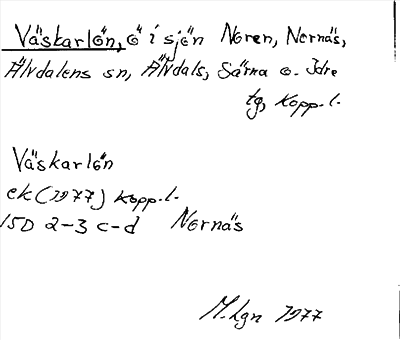 Väskarlön, ö i sjön Noren, Nornäs,
Älvdalens sn, Älvdals, Särna o. Idre
tg, Kopp. l.
Väskarlön
ek (1977) Kopp. l.
15D 2-3 c-d Nornäs
M. Lgn 1977